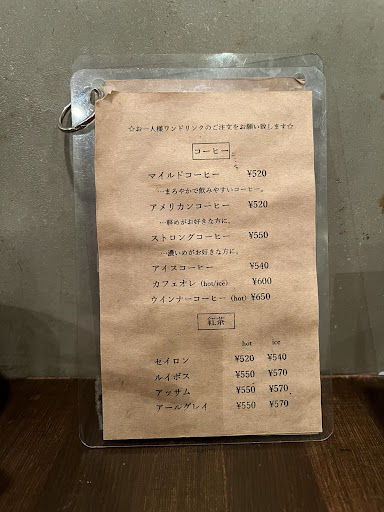 ☆お一人様ワンドリンクのご注文をお願い致します☆
コーヒー
マイルドコーヒー ¥520
…まろやかで飲みやすいコーヒー。
アメリカンコーヒー ¥520
…軽めがお好きな方に。
ストロングコーヒー ¥550
…濃いめがお好きな方に。
アイスコーヒー ¥540
カフェオレ (hot/ice) ¥600
ウインナーコーヒー (hot) ¥650
紅茶
hot ice
セイロン ¥520 ¥540
ルイボス ¥550 ¥570
アッサム ¥550 ¥570
アールグレイ ¥550 ¥570